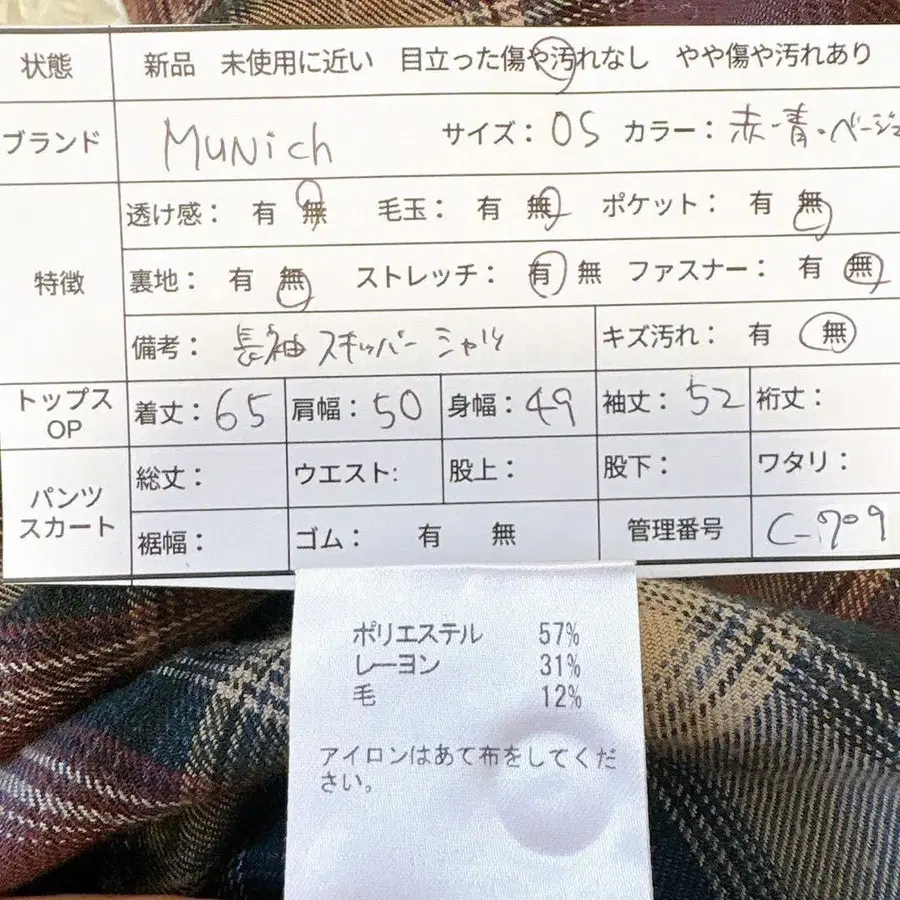 状態 新品 未使用に近い 目立った傷や汚れなし やや傷や汚れあり
ブランド MUNich サイズ: OS カラー: 赤・青・ベージュ
特徴
透け感: 有 無 毛玉: 有 無 ポケット: 有 無
裏地: 有 無 ストレッチ: 有 無 ファスナー: 有 無
備考: 長袖 スキッパー シャツ キズ汚れ: 有 無
トップス OP 着丈: 65 肩幅: 50 身幅: 49 袖丈: 52 裄丈:
パンツ スカート
総丈: ウエスト: 股上: 股下: ワタリ:
裾幅: ゴム: 有 無 管理番号 C-709
ポリエステル 57%
レーヨン 31%
毛 12%
アイロンはあて布をしてくだ
さい。